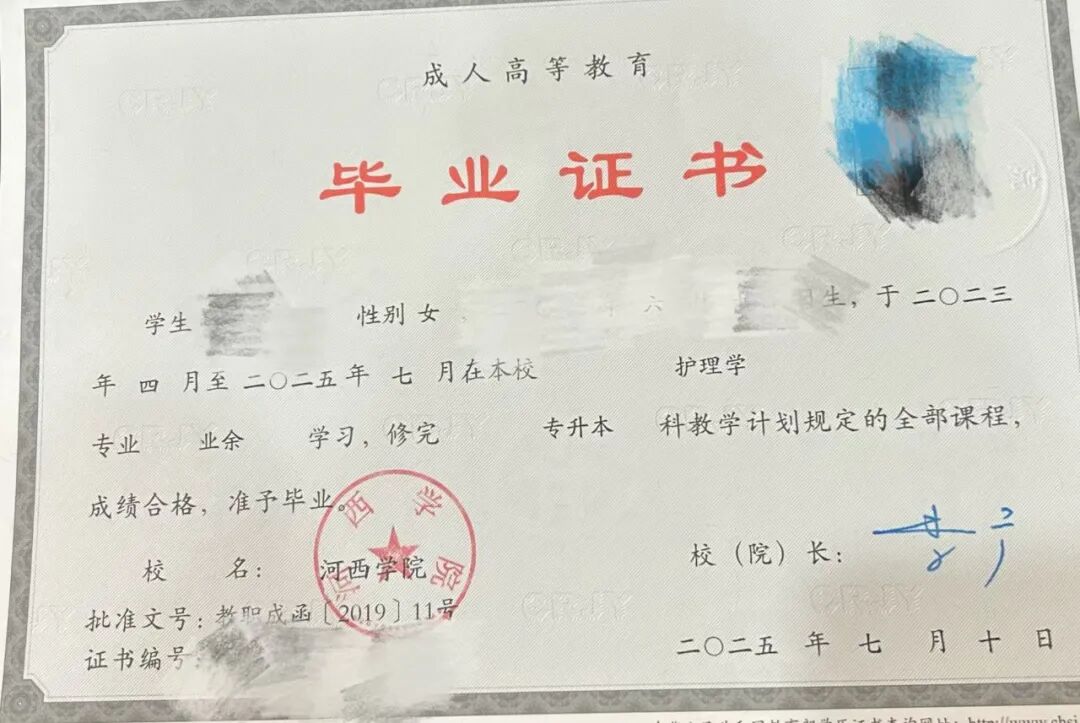 成人高等教育
毕业证书
学生 性别 女 年 六 生，于 二〇二三
年 四 月至 二〇二五 年 七 月在本校 护理学
专业 业余 学习，修完 专升本 科教学计划规定的全部课程，
成绩合格，准予毕业。
河西学院
校 名： 河西学院 校（院）长：
批准文号：教职成函〔2019〕11号
证书编号： 二〇二五 年 七 月 十 日